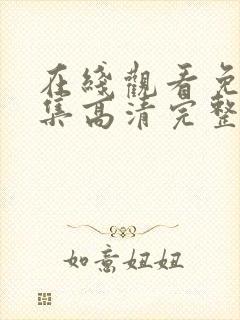 在綫觀看免
集高清完整
如意妞妞